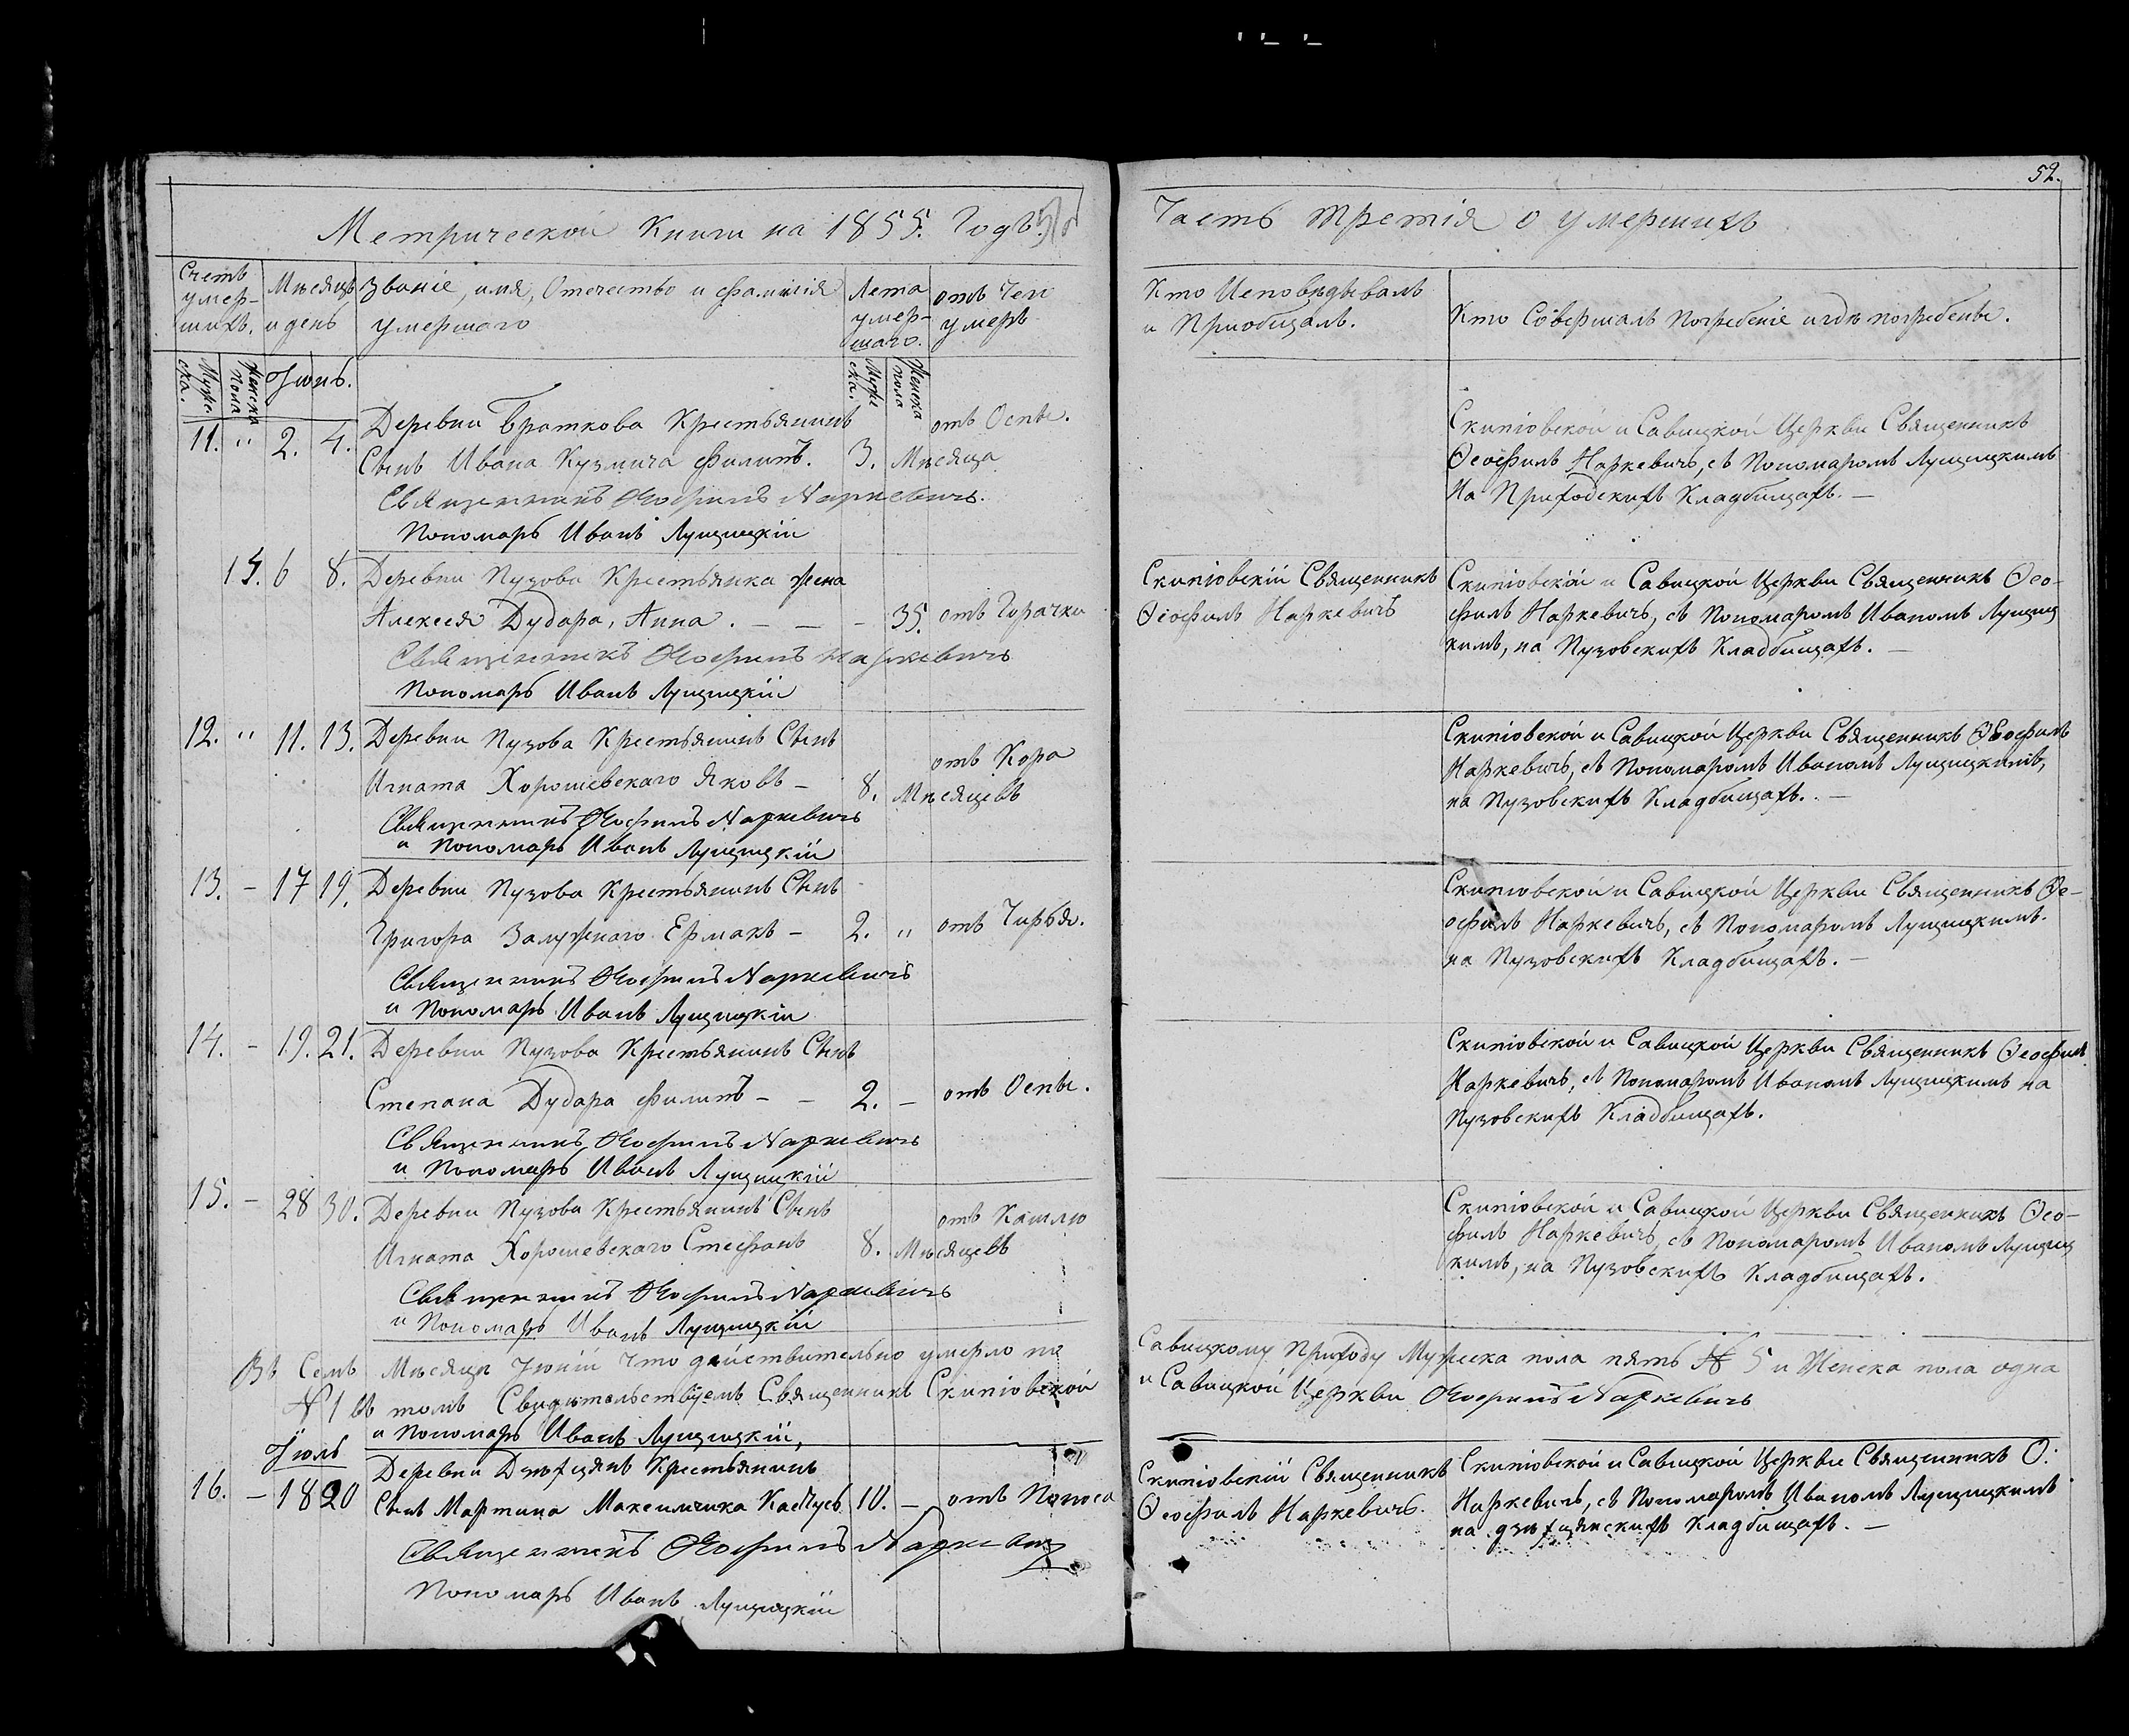 52.
Метрической Книги на 1855. Годъ.
Часть третія о умершихъ
Счетъ умер- шихъ.
Мѣсяцъ и день
Званіе, имя, Отечество и фамилія умершаго
Лета умер- шаго.
отъ Чего умеръ
Кто Исповѣдывалъ и Приобщалъ.
Кто Совершалъ Погребеніе и гдѣ погребены.
Муже ска.
Женска пола
Іюнь.
Муже ска.
Женска пола
11. " 2. 4. Деревни Браткова Крестьянинъ отъ Оспы.
Сынъ Ивана Кузмича Филипъ. 3. Мѣсяца
Священникъ Ѳеофилъ Наркевичъ.
Пономарь Иванъ Лущицкій
Скипіовской и Савицкой Церкви Священникъ
Ѳеофилъ Наркевичъ, съ Пономаромъ Лущицкимъ
На Приходскихъ Кладбищахъ. —
15. 6 8. Деревни Пузова Крестьянка жена
Алексея Дудара, Анна. — — — 35. отъ Горачки
Священникъ Ѳеофилъ Наркевичъ
Пономарь Иванъ Лущицкій
Скипіовскій Священникъ
Ѳеофилъ Наркевичъ
Скипіовскій и Савицкой Церкви Священникъ Ѳео-
филъ Наркевичъ, съ Пономаромъ Иваномъ Лущиц
кимъ, на Пузовскихъ Кладбищахъ. —
12. " 11. 13. Деревни Пузова Крестьянинъ Сынъ
отъ Кора
Игната Хорошевскаго Яковъ — 8. Мѣсяцевъ
Священникъ Ѳеофилъ Наркевичъ
и Пономарь Иванъ Лущицкій
Скипіовской и Савицкой Церкви Священникъ Ѳеофилъ
Наркевичъ, съ Пономаромъ Иваномъ Лущицкимъ,
на Пузовскихъ Кладбищахъ. —
13. — 17 19. Деревни Пузова Крестьянинъ Сынъ
Григора Залужнаго Ермакъ — 2. " отъ Чирья.
Священникъ Ѳеофилъ Наркевичъ
и Пономарь Иванъ Лущицкій
Скипіовской и Савицкой Церкви Священникъ Ѳе-
офилъ Наркевичъ, съ Пономаромъ Лущицкимъ.
на Пузовскихъ Кладбищахъ. —
14. — 19. 21. Деревни Пузова Крестьянинъ Сынъ
Степана Дудара Филипъ — — 2. — отъ Оспы.
Священникъ Ѳеофилъ Наркевичъ
и Пономарь Иванъ Лущицкій
Скипіовской и Савицкой Церкви Священникъ Ѳеофилъ
Наркевичъ, съ Пономаромъ Иваномъ Лущицкимъ на
Пузовскихъ Кладбищахъ.
15. — 28 30. Деревни Пузова Крестьянинъ Сынъ
отъ Кашлю
Игната Хорошевскаго Стефанъ 8. Мѣсяцевъ
Священникъ Ѳеофилъ Наркевичъ
и Пономарь Иванъ Лущицкій
Скипіовской и Савицкой Церкви Священникъ Ѳео-
филъ Наркевичъ, съ Пономаромъ Иваномъ Лущиц
кимъ, на Пузовскихъ Кладбищахъ.
Въ Семъ Мѣсяцѣ Іюній что действительно умерло по Савицкому Приходу Мужеска пола пять № 5 и Женска пола одна
№ 1 въ томъ Свидѣтельствуемъ Священникъ Скипіовской и Савицкой Церкви Ѳеофилъ Наркевичъ
и Пономарь Иванъ Лущицкій,
Іюль
16. — 18 20 Деревни Дзѣхцянъ Крестьянинъ
Сынъ Мартина Максимчика 10. — отъ Поноса
Священникъ Ѳеофилъ Наркевичъ
Пономарь Иванъ Лущицкій
Скипіовскій Священникъ
Ѳеофилъ Наркевичъ.
Скипіовской и Савицкой Церкви Священникъ Ѳ:
Наркевичъ, съ Пономаромъ Иваномъ Лущицкимъ
на дзѣхцянскихъ Кладбищахъ. —